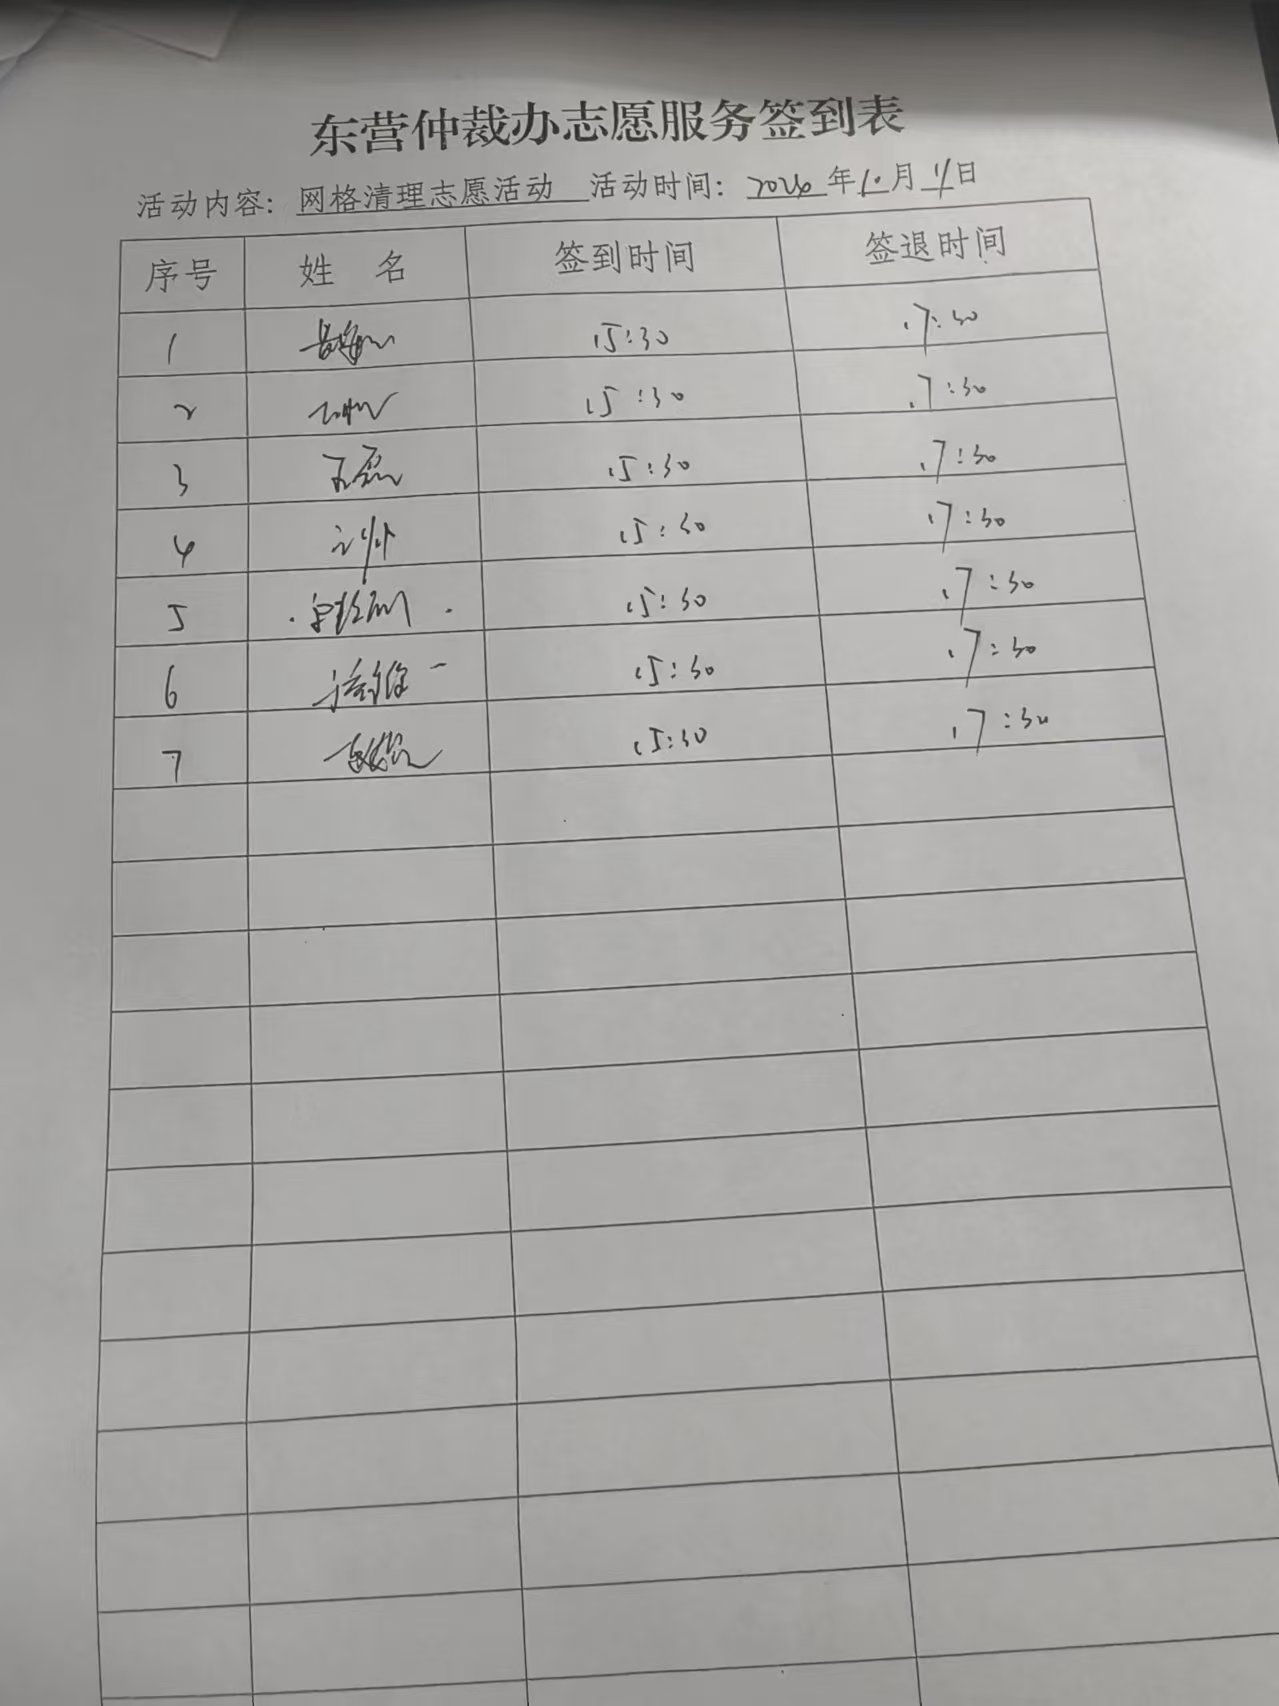 东营仲裁办志愿服务签到表
活动内容：网格清理志愿活动 活动时间：2024年10月11日
序号 姓 名 签到时间 签退时间
1 15:30 17:30
2 15:30 17:30
3 王磊 15:30 17:30
4 15:30 17:30
5 15:30 17:30
6 15:30 17:30
7 15:30 17:30